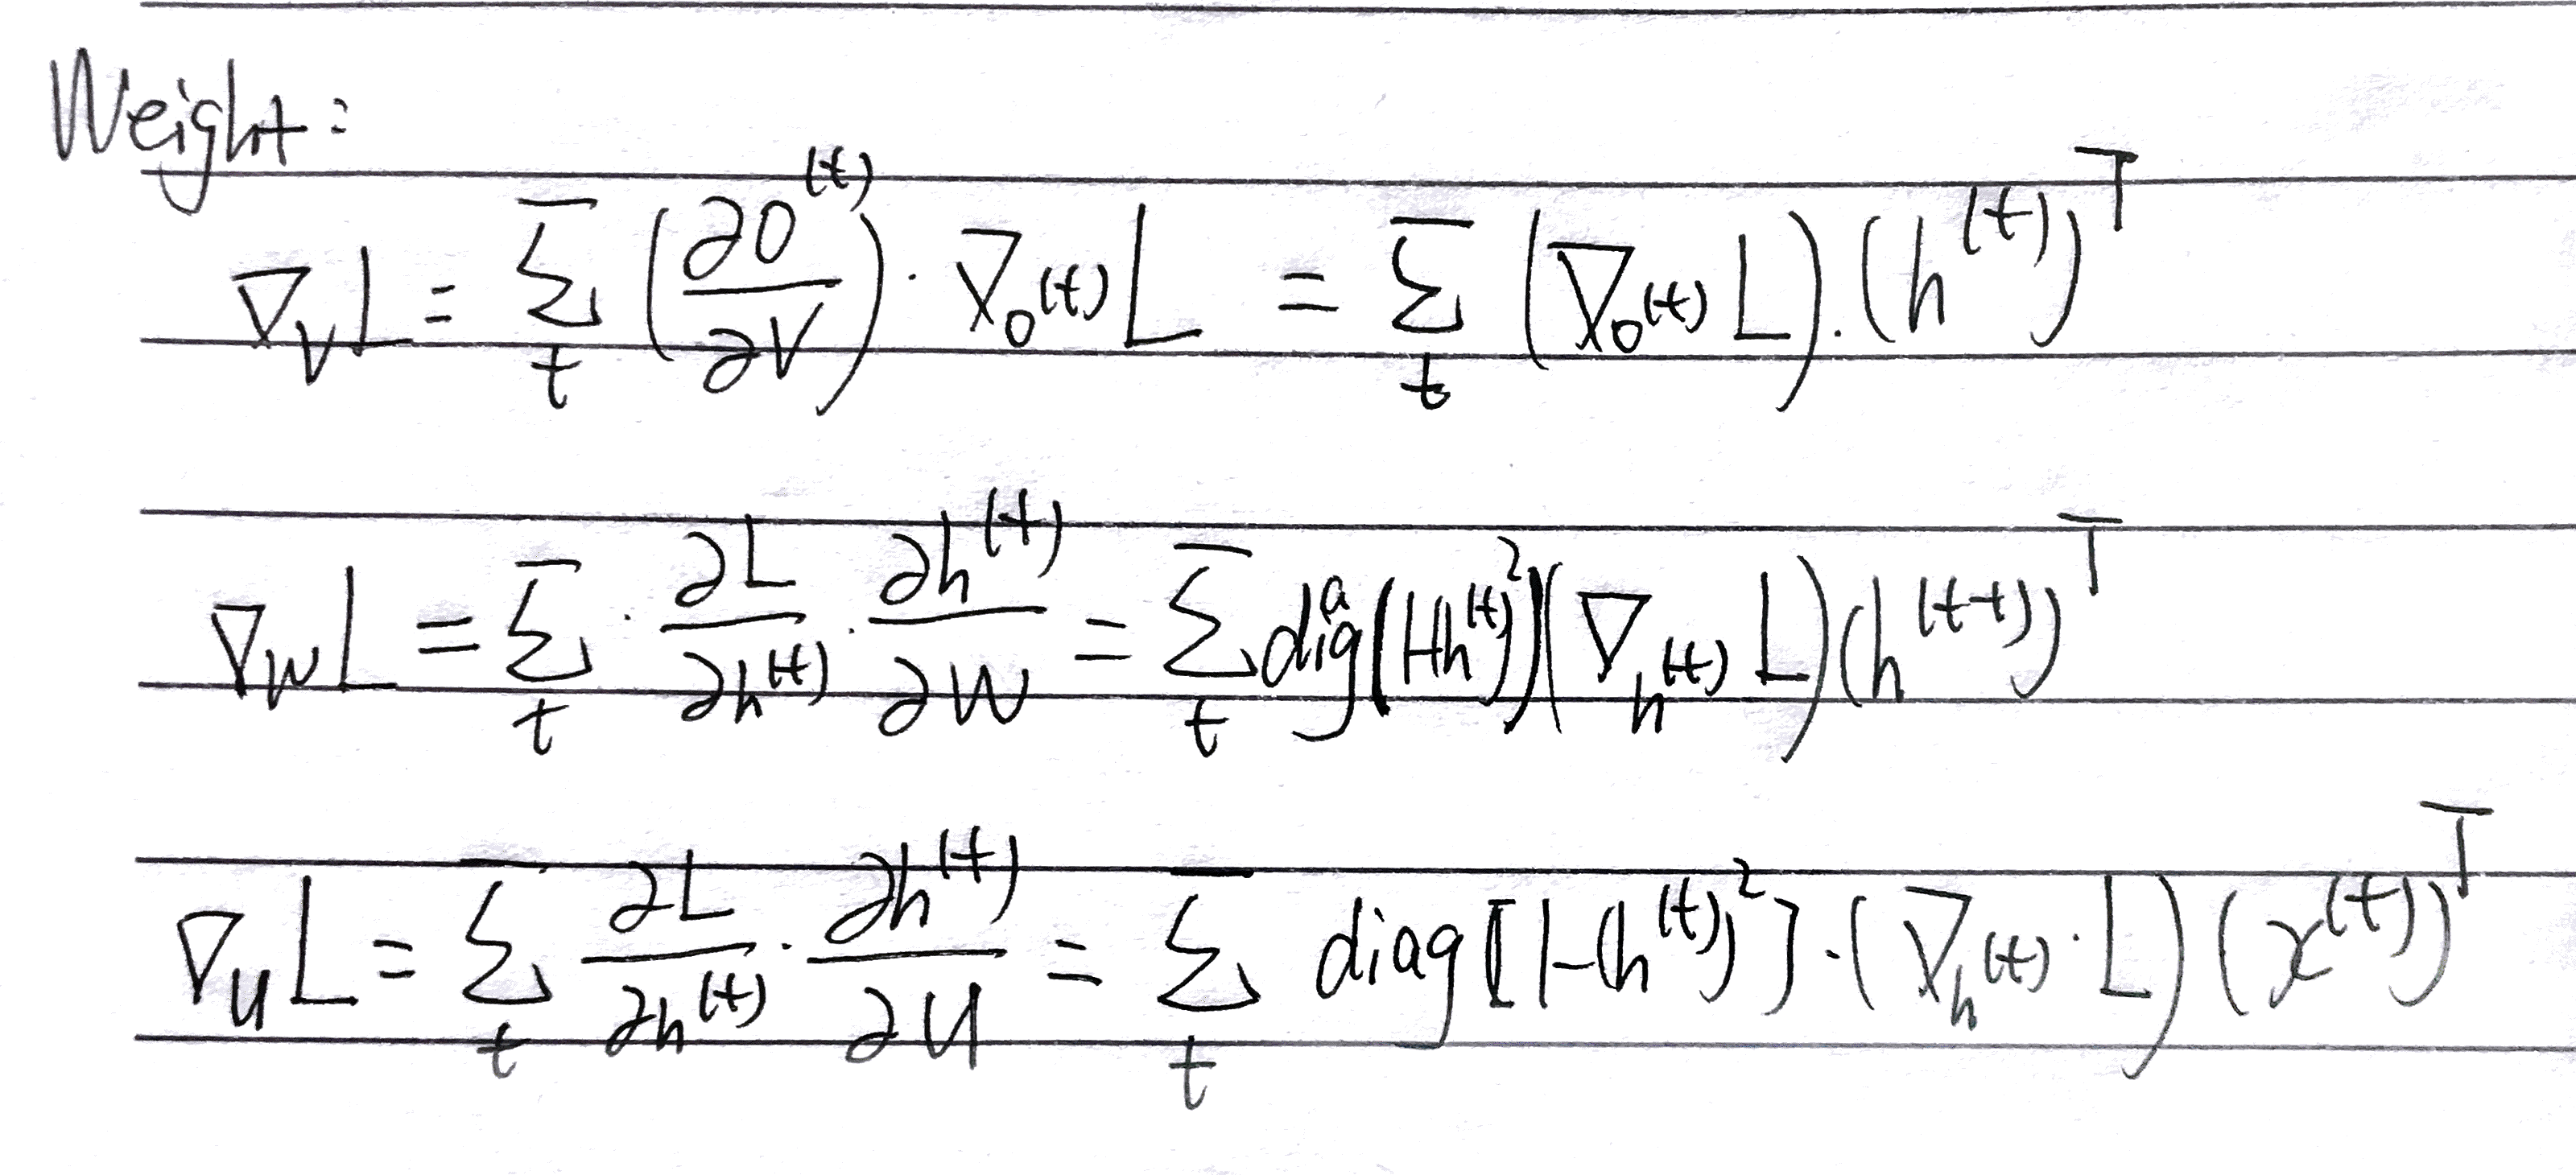 Weight:
∇_V L = Σ_t (∂o^(t)/∂V) · ∇_o^(t) L = Σ_t (∇_o^(t) L) · (h^(t))^T
∇_W L = Σ_t · ∂L/∂h^(t) · ∂h^(t)/∂W = Σ_t diag(1-h^(t)²)(∇_h^(t) L)(h^(t-1))^T
∇_U L = Σ_t ∂L/∂h^(t) · ∂h^(t)/∂U = Σ_t diag[1-(h^(t))²] · (∇_h^(t) · L)(x^(t))^T